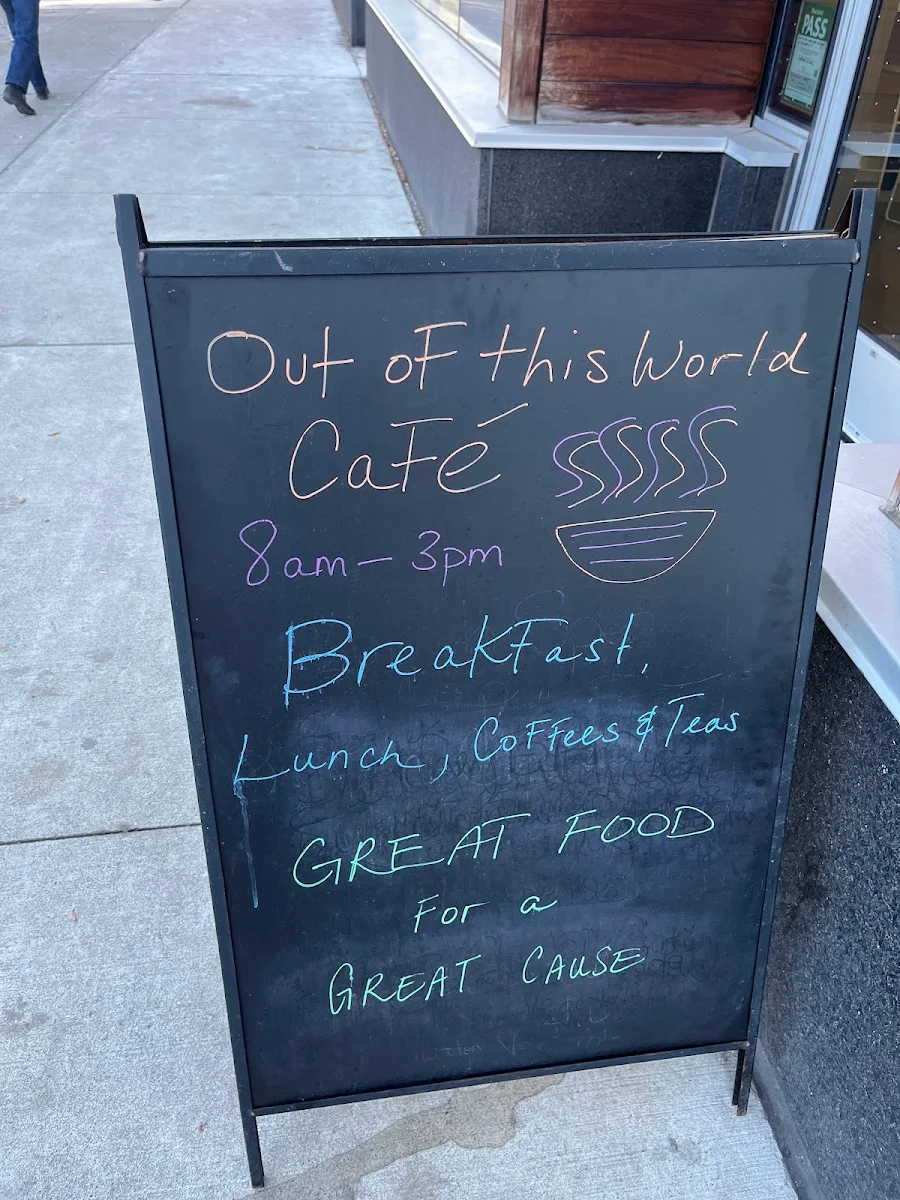 PASS
Out of this World
Café
8am - 3pm
Breakfast,
Lunch, Coffees & Teas
GREAT FOOD
For a
GREAT CAUSE